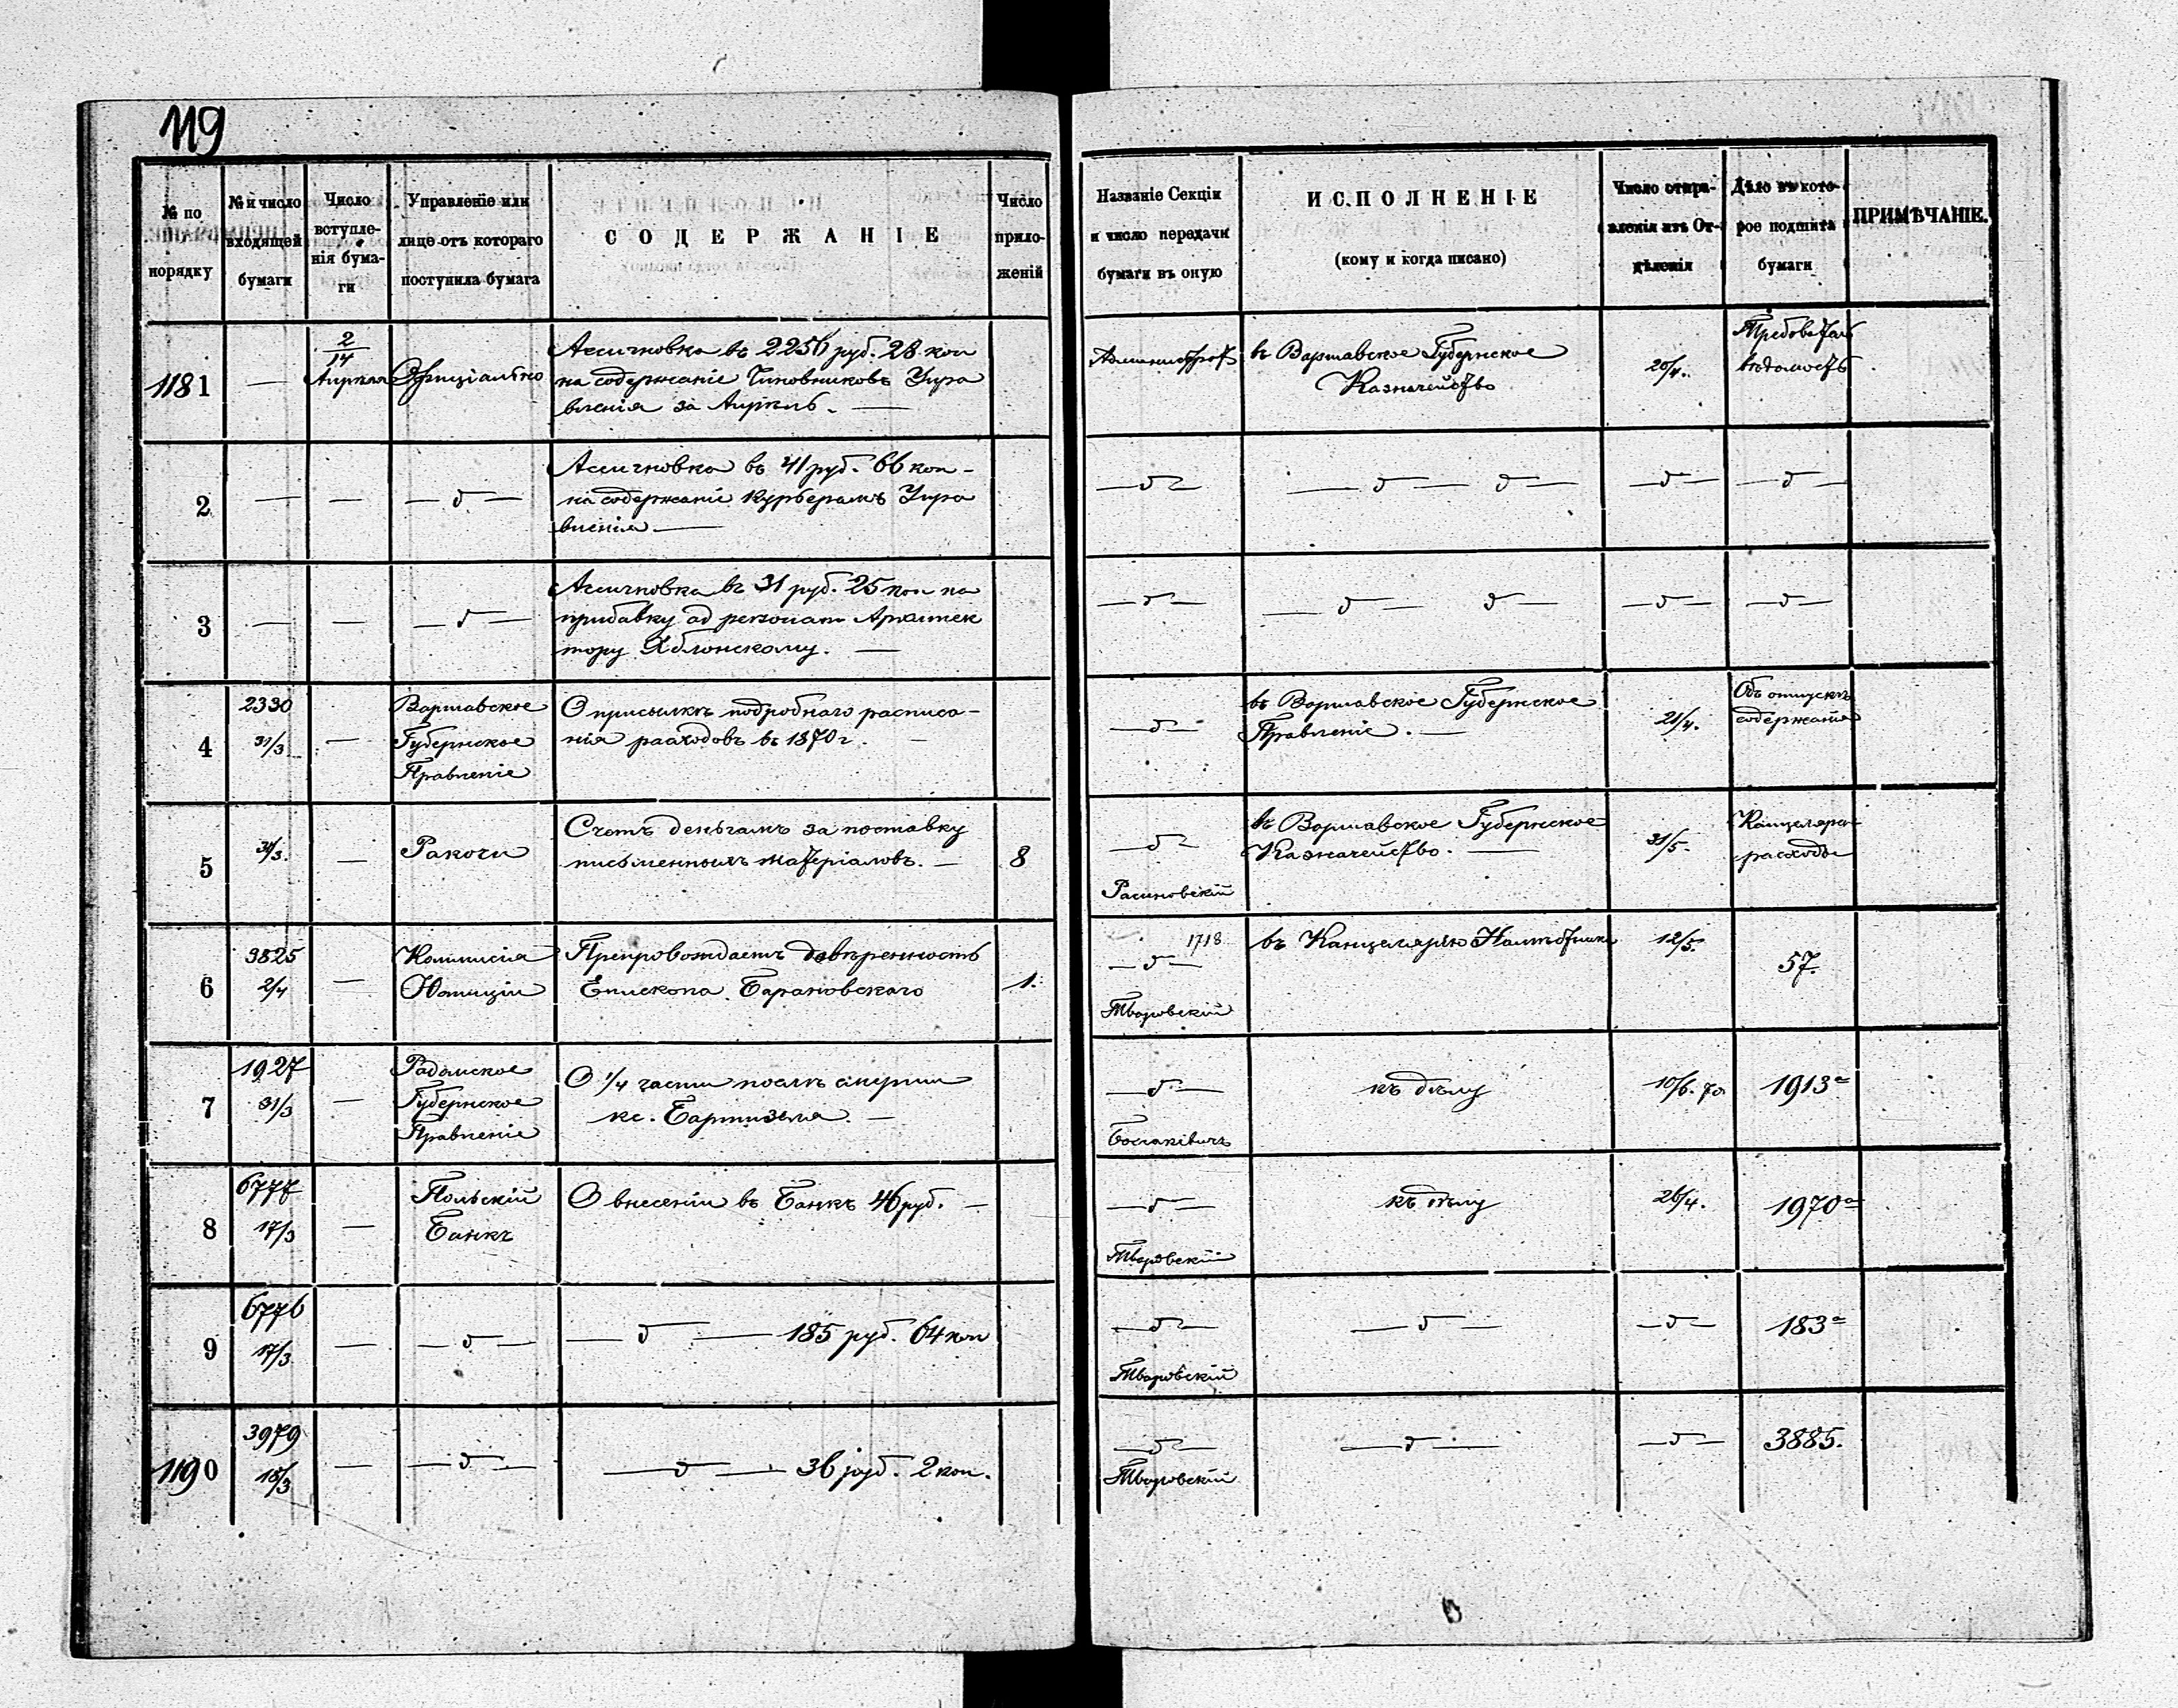 119
№ по порядку
№ и число входящей бумаги
Число вступле-нія бума-ги
Управленіе или лице отъ котораго поступила бумага
СОДЕРЖАНІЕ
Число прило-женій
Названіе Секціи и число передачи бумаги въ оную
ИСПОЛНЕНІЕ
(кому и когда писано)
Число отпра-вленія изъ От-дѣленія
Дѣло въ кото-рое подшита бумаги
ПРИМѢЧАНІЕ.
1181 — 2/14 Апрѣля Офиціально
Ассигновка въ 2256 руб. 28 коп
на содержаніе Чиновниковъ Упра
вленія за Апрѣль. —
въ Варшавское Губернское
Казначейство
20/4.
Требователь
вѣдомость
2 — — — д —
Ассигновка въ 41 руб. 66 коп -
на содержаніе Курьерамъ Упра
вленія —
— д — — д — д — — д — — д —
3 — — — д —
Ассигновка въ 31 руб. 25 коп на
прибавку ad personam Архитек
тору Яблонскому. —
— д — — д — д — — д — — д —
4 2330 31/3 —
Варшавское
Губернское
Правленіе
О присылкѣ подробнаго расписа-
нія расходовъ въ 1870 г. —
— д —
въ Варшавское Губернское
Правленіе. —
21/4.
Объ отпускѣ
содержанія
5 31/3. —
Ракочи
Счетъ деньгамъ за поставку
письменныхъ матеріаловъ. —
8
— д —
въ Варшавское Губернское
Казначейство. —
31/5.
расходы
6 3825 2/4 —
Коммисія
Юстиціи
Препровождаетъ довѣренность
Епископа Барановскаго
1.
1718
— д —
Творовскій
въ Канцелярію Намѣстника
12/5.
57.
7 1927 31/3 —
Радомское
Губернское
Правленіе
О 1/4 части послѣ смерти
кс. —
— д —
къ дѣлу
10/6. 70
1913а
8 6777 17/3 —
Польскій
Банкъ
О внесеніи въ Банкъ 46 руб. —
— д —
Творовскій
къ дѣлу
26/4.
1970а
9 6776 17/3 — — д —
— д — 185 руб. 64 коп
— д —
Творовскій
— д — — д —
183а
1190 3979 18/3 — — д —
— д — 36 руб. 2 коп.
— д —
Творовскій
— д — — д —
3885.